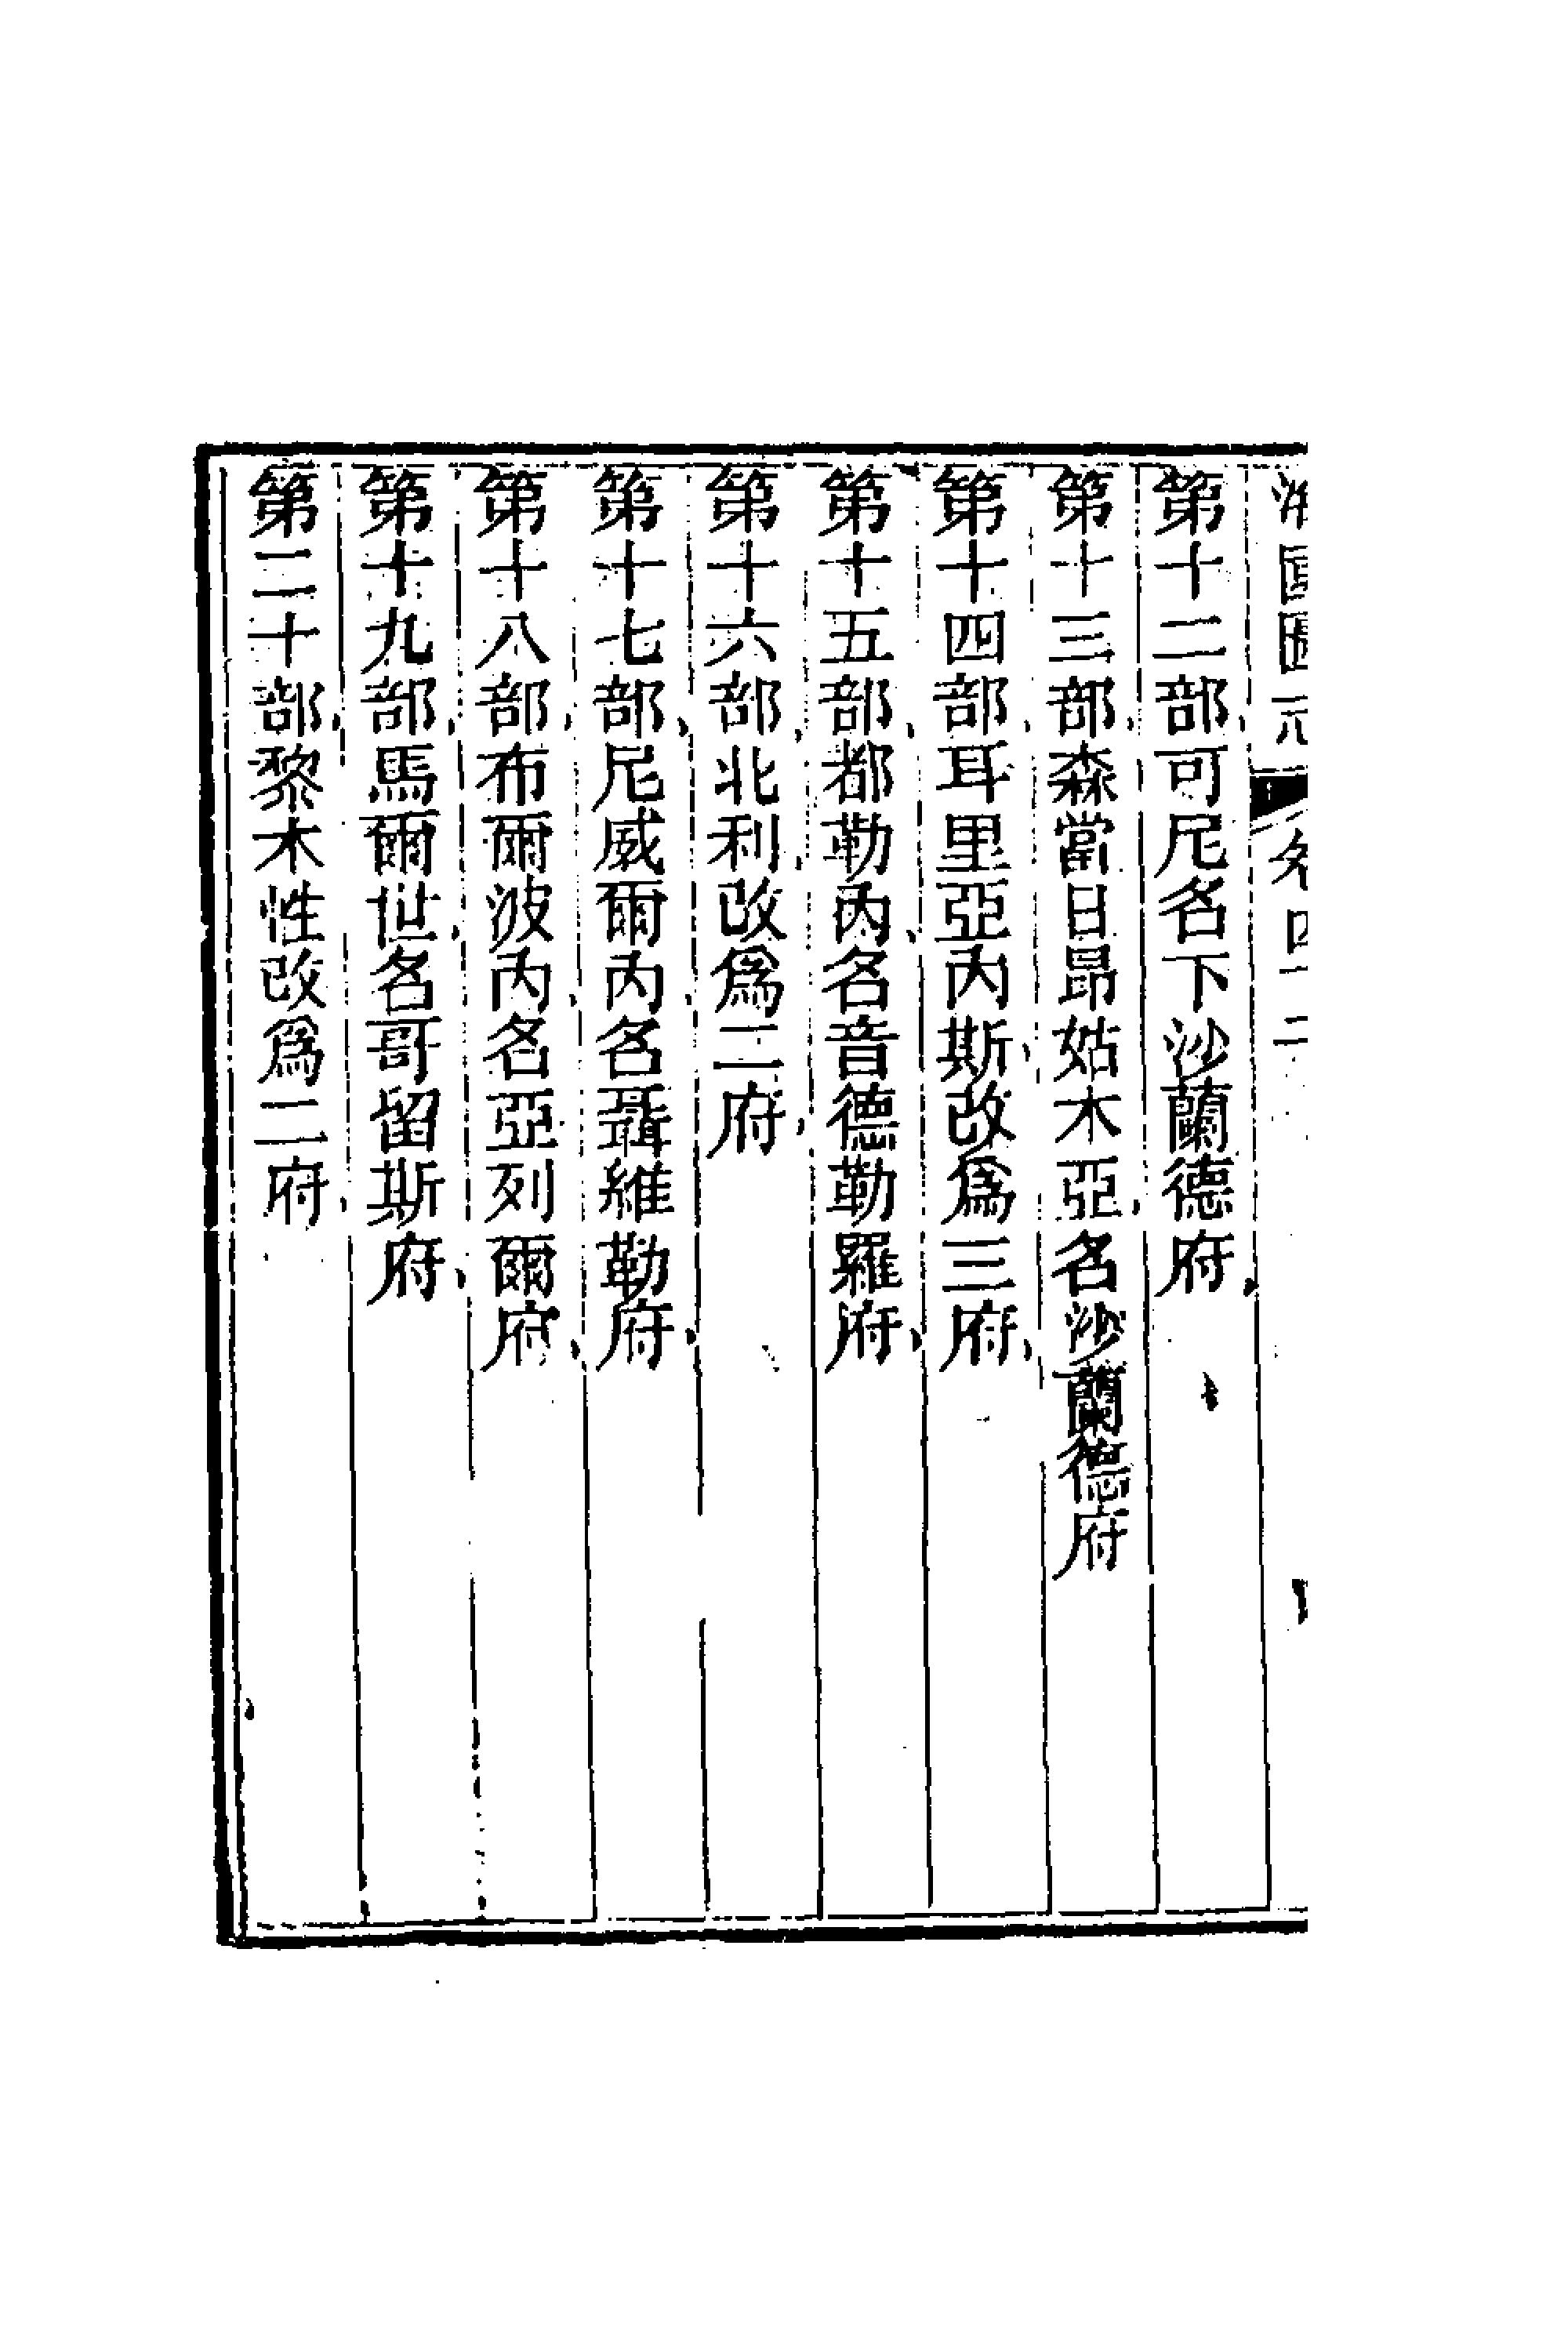 海國圖志 卷四十二
第十二部可尼名下沙蘭德府
第十三部森當日昂姑木亞名沙蘭德府
第十四部耳里亞丙斯改爲三府
第十五部都勒丙名音德勒羅府
第十六部北利改爲二府
第十七部尼威爾丙名聶維勒府
第十八部布爾波丙名亞列爾府
第十九部馬爾世名哥留斯府
第二十部黎木性改爲二府